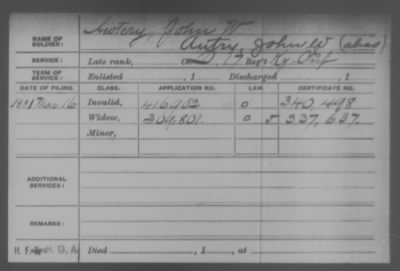 NAME OF SOLDIER: Autery, John W
Autry, John W (alias)
SERVICE: Late rank, Co. D, 17 Reg't Ky. Inf
TERM OF SERVICE: Enlisted , 1 Discharged , 1
DATE OF FILING. CLASS. APPLICATION NO. LAW. CERTIFICATE NO.
1891 16 Invalid, 416902 0 340,498
Widow, 509,801. 0 337,637.
Minor,
ADDITIONAL SERVICES:
REMARKS:
Died , 1 , at